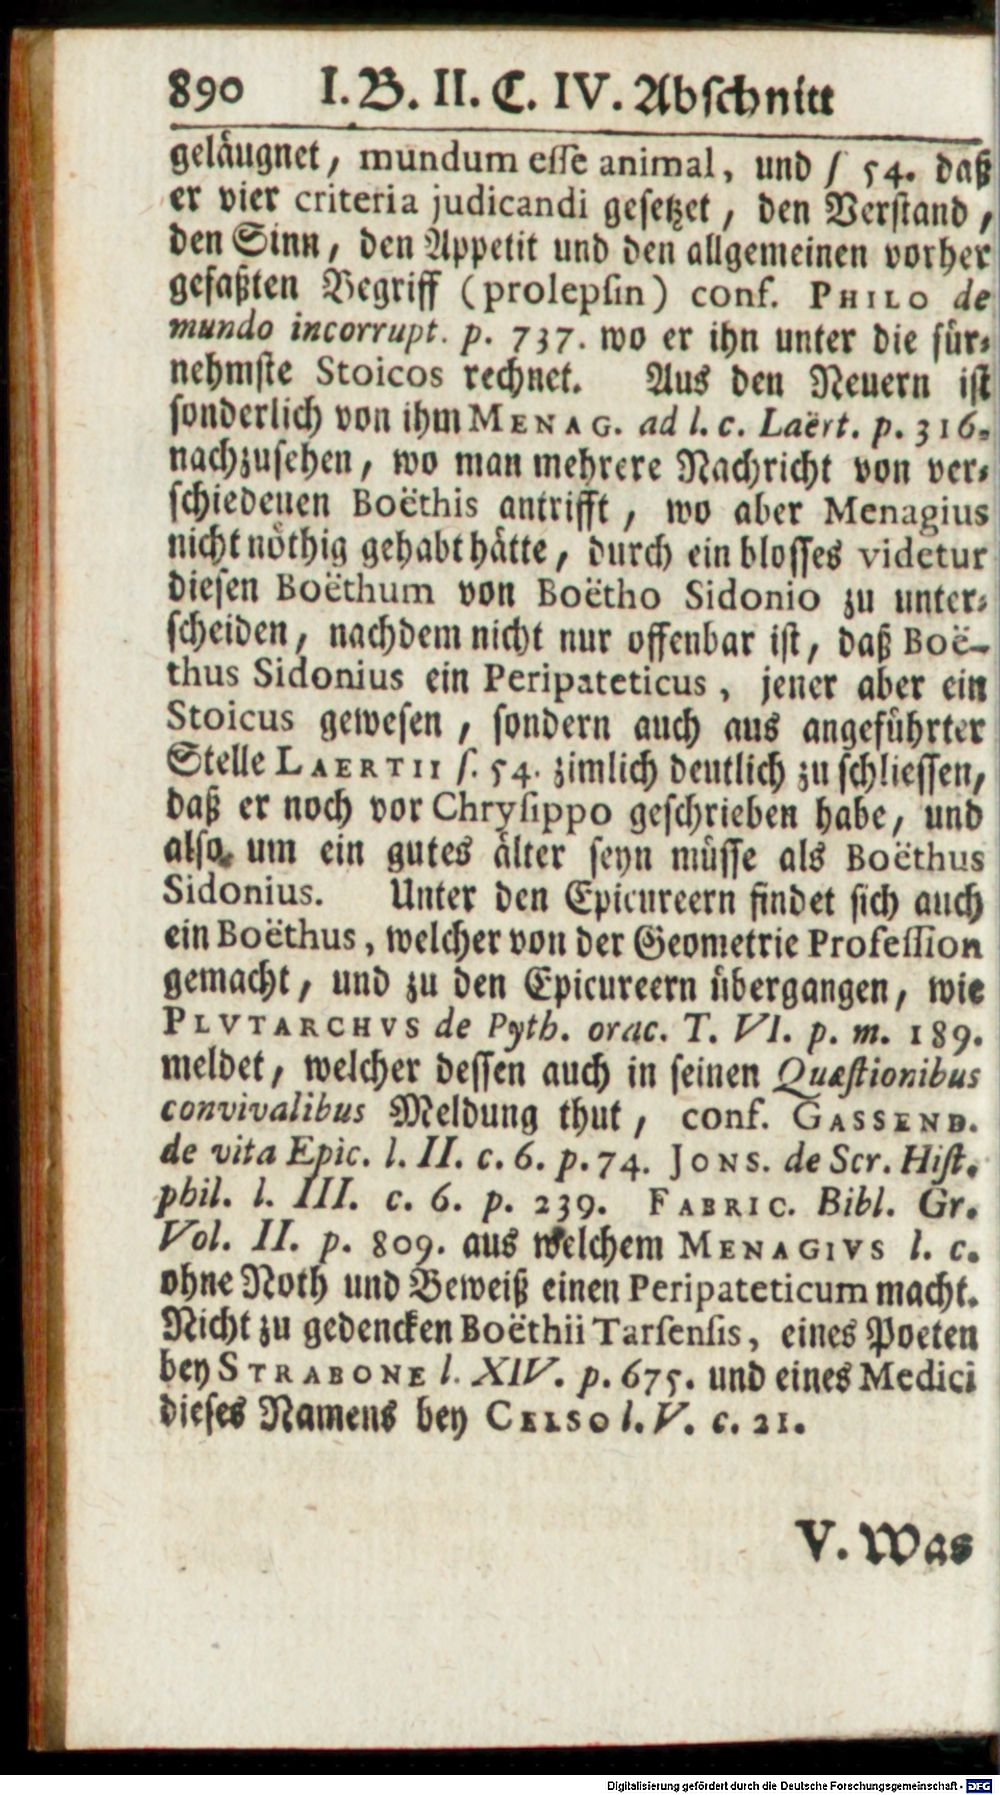 890 I. B. II. C. IV. Abschnitt
geläugnet, mundum esse animal, und ſ 54. daß
er vier criteria judicandi gesetzet, den Verstand,
den Sinn, den Appetit und den allgemeinen vorher
gefaßten Begriff (prolepsin) conf. PHILO de
mundo incorrupt. p. 737. wo er ihn unter die für-
nehmste Stoicos rechnet. Aus den Neuern ist
sonderlich von ihm MENAG. ad l. c. Laërt. p. 316.
nachzusehen, wo man mehrere Nachricht von ver-
schiedenen Boëthis antrifft, wo aber Menagius
nicht nöthig gehabt hätte, durch ein blosses videtur
diesen Boëthum von Boëtho Sidonio zu unter-
scheiden, nachdem nicht nur offenbar ist, daß Boë-
thus Sidonius ein Peripateticus, jener aber ein
Stoicus gewesen, sondern auch aus angeführter
Stelle LAERTII s. 54. zimlich deutlich zu schliessen,
daß er noch vor Chrysippo geschrieben habe, und
also um ein gutes älter seyn müsse als Boëthus
Sidonius. Unter den Epicureern findet sich auch
ein Boëthus, welcher von der Geometrie Profession
gemacht, und zu den Epicureern übergangen, wie
PLVTARCHVS de Pyth. orac. T. VI. p. m. 189.
meldet, welcher dessen auch in seinen Quæstionibus
convivalibus Meldung thut, conf. GASSEND.
de vita Epic. l. II. c. 6. p. 74. JONS. de Scr. Hist.
phil. l. III. c. 6. p. 239. FABRIC. Bibl. Gr.
Vol. II. p. 809. aus welchem MENAGIVS l. c.
ohne Noth und Beweiß einen Peripateticum macht.
Nicht zu gedencken Boëthii Tarsensis, eines Poeten
bey STRABONE l. XIV. p. 675. und eines Medici
dieses Namens bey CELSO l. V. c. 21.
V. Was
Digitalisierung gefördert durch die Deutsche Forschungsgemeinschaft - DFG